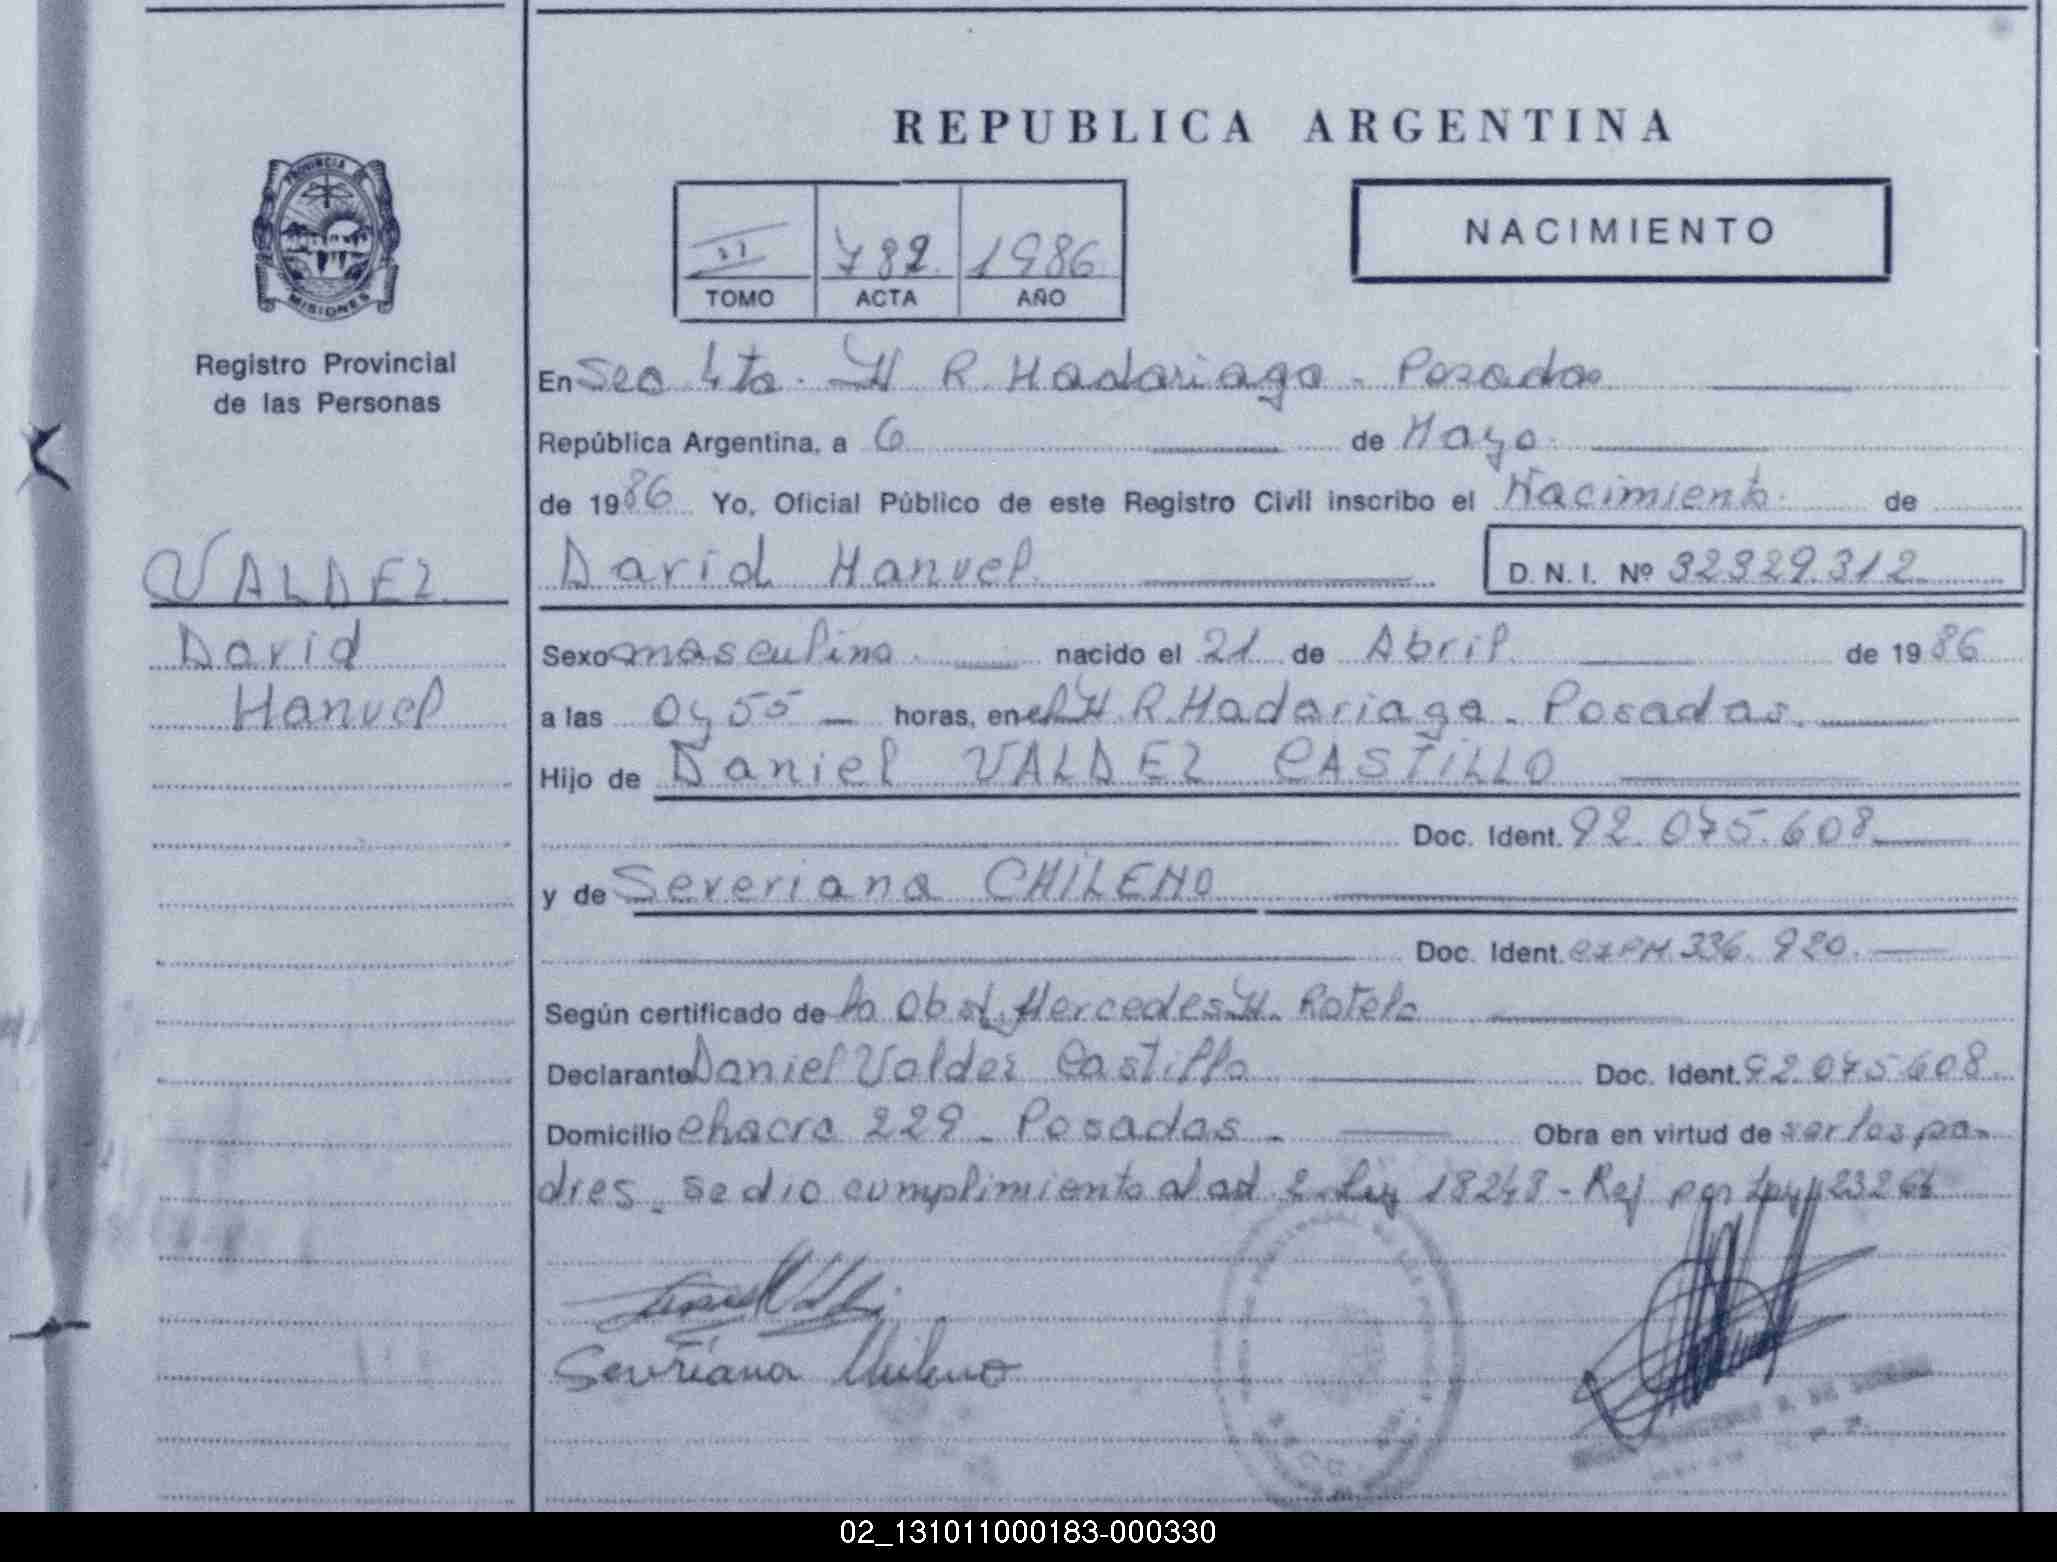 REPUBLICA ARGENTINA
PROVINCIA DE
MISIONES
Registro Provincial
de las Personas
II 782 1986
TOMO ACTA AÑO
NACIMIENTO
En Sec 4ta. H R Madariaga - Posadas
República Argentina, a 6 de Mayo
de 1986 Yo, Oficial Público de este Registro Civil inscribo el Nacimiento de
David Manuel D.N.I. Nº 32329.312
VALDEZ
David
Manuel
Sexo masculino nacido el 21 de Abril de 1986
a las 04 55 - horas, en el H. R. Madariaga - Posadas.
Hijo de Daniel VALDEZ CASTILLO
Doc. Ident. 92.075.608
y de Severiana CHILENO
Doc. Ident. CIPM 336.920.
Según certificado de la Obst. Mercedes H. Rotela
Declarante Daniel Valdez Castillo Doc. Ident. 92.075.608
Domicilio Chacra 229 - Posadas - Obra en virtud de ser los pa-
dres. Se dio cumplimiento al art 2 Ley 18248 - Ref por Ley 23264
Severiana Chileno
02_131011000183-000330